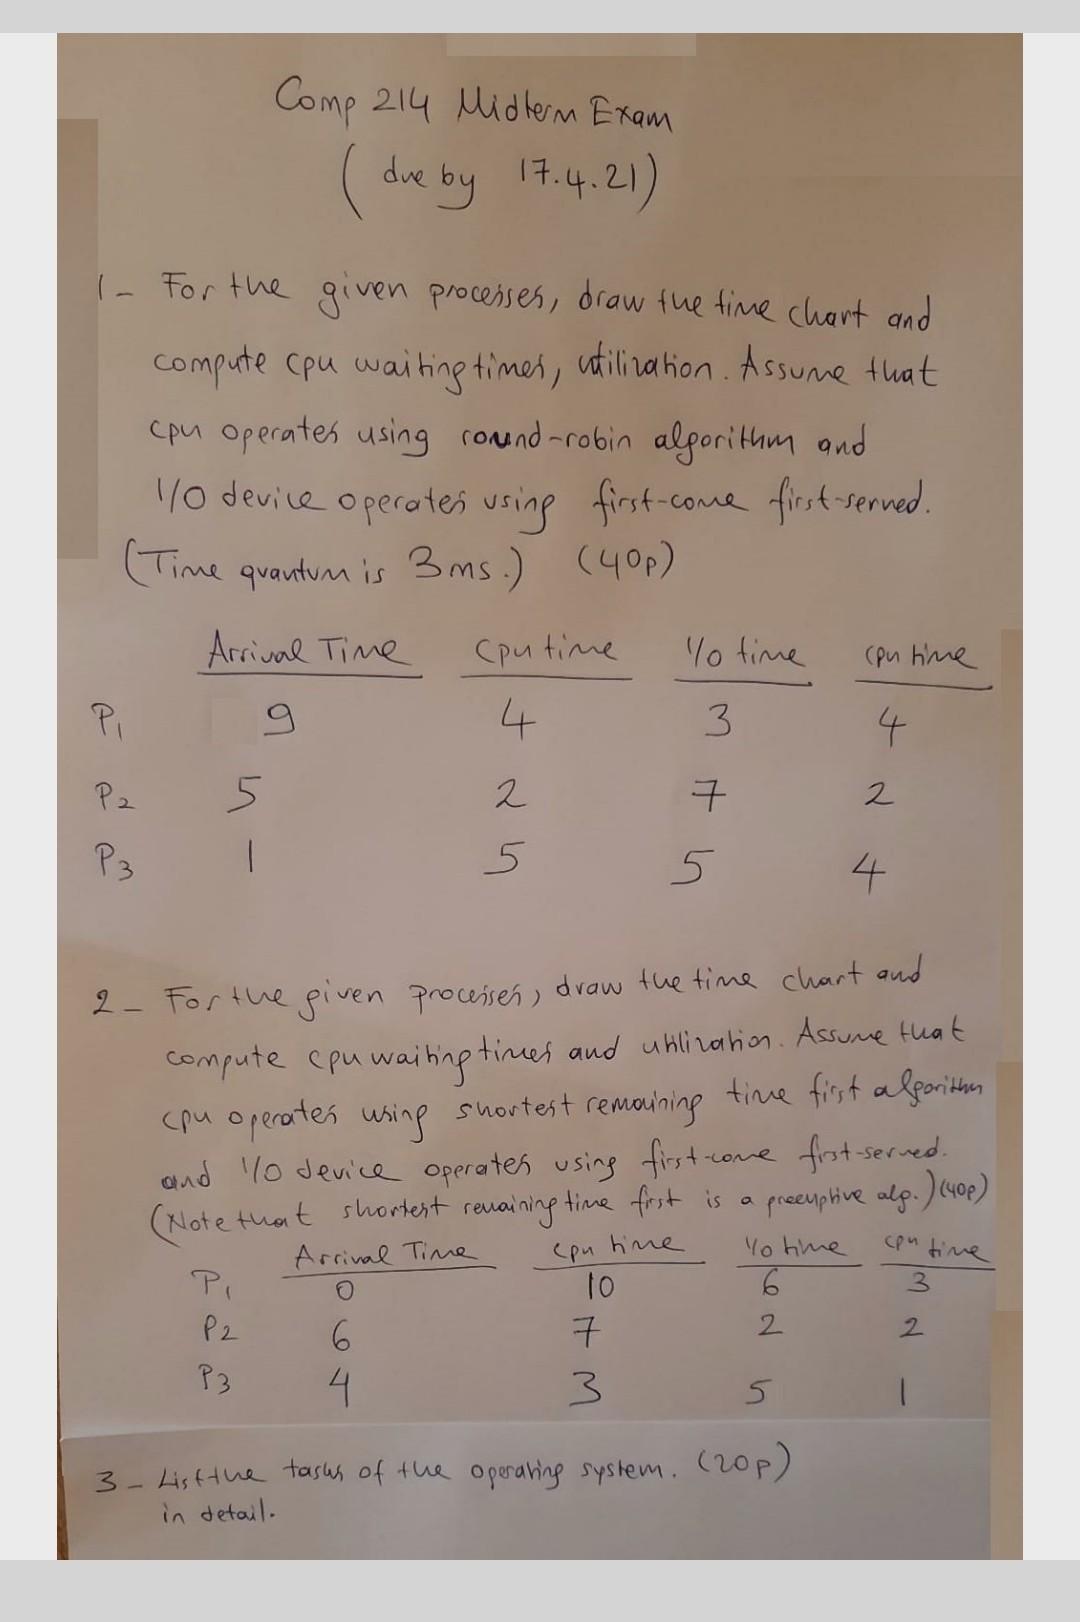 Comp 214 Midterm Exam
(due by 17.4.21)
1- For the given processes, draw the time chart and
compute cpu waiting times, utilization. Assume that
cpu operates using round-robin algorithm and
I/O device operates using first-come first-served.
(Time quantum is 3 ms.) (40p)
Arrival Time cpu time I/o time cpu time
P1 9 4 3 4
P2 5 2 7 2
P3 1 5 5 4
2- For the given processes, draw the time chart and
compute cpu waiting times and utilization. Assume that
cpu operates using shortest remaining time first algorithm
and I/o device operates using first-come first-served.
(Note that shortest remaining time first is a preemptive alg.) (40p)
Arrival Time cpu time I/o time cpu time
P1 0 10 6 3
P2 6 7 2 2
P3 4 3 5 1
3- List the tasks of the operating system. (20p)
in detail.